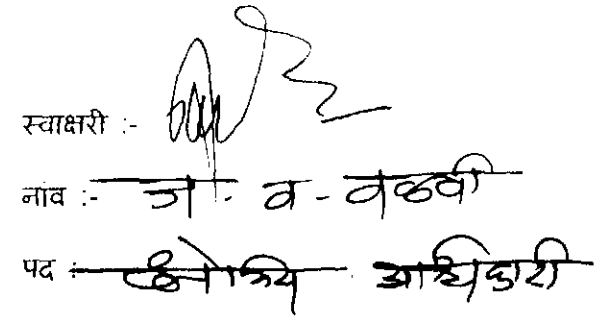 स्वाक्षरी :-
नांव :- ज. व. वळवी
पद :- क्षेत्रिय अधिकारी